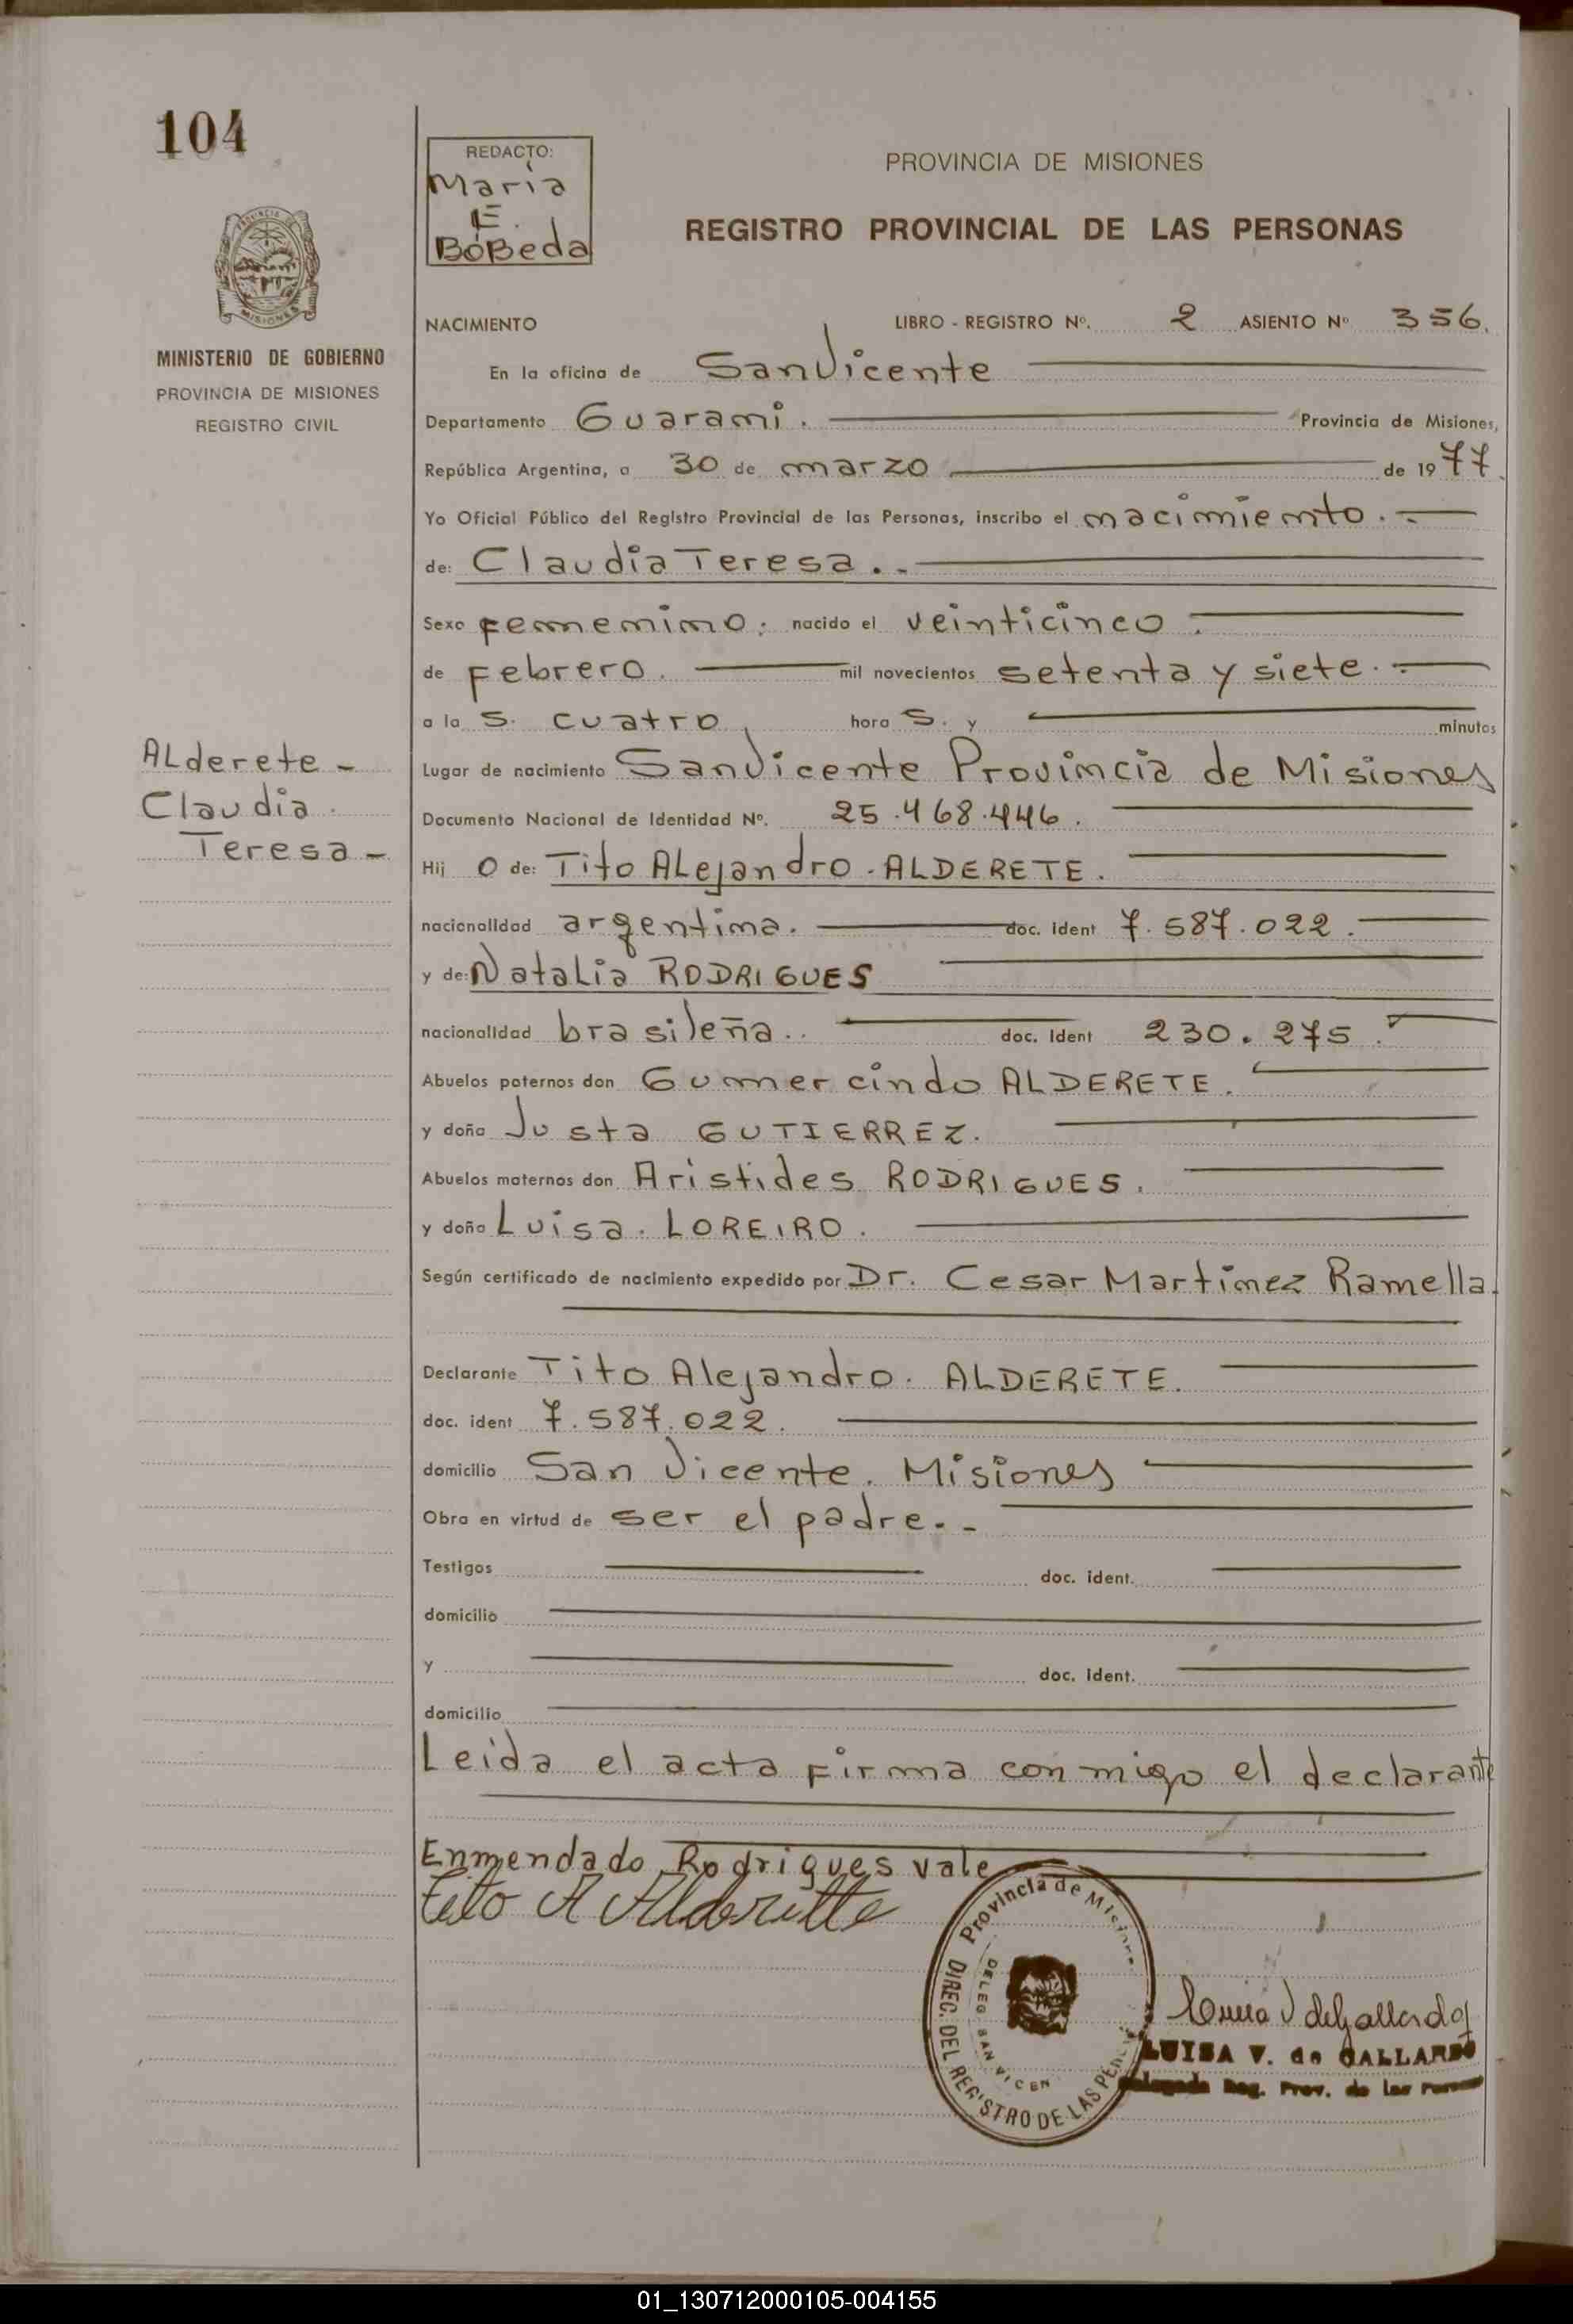 104
REDACTO:
Maria
E.
BóBeda
PROVINCIA DE MISIONES
REGISTRO PROVINCIAL DE LAS PERSONAS
MINISTERIO DE GOBIERNO
PROVINCIA DE MISIONES
REGISTRO CIVIL
NACIMIENTO LIBRO - REGISTRO Nº. 2 ASIENTO Nº 356.
En la oficina de San Vicente
Departamento Guarani. Provincia de Misiones,
República Argentina, a 30 de marzo de 1977.
Yo Oficial Público del Registro Provincial de las Personas, inscribo el nacimiento.-
de: Claudia Teresa.-
Sexo femenino. nacido el veinticinco.
de febrero. mil novecientos setenta y siete.-
a la s. cuatro hora s. y minutos
Alderete -
Claudia
Teresa -
Lugar de nacimiento San Vicente Provincia de Misiones
Documento Nacional de Identidad Nº. 25.468.446.
Hij o de: Tito ALejandro. ALDERETE.
nacionalidad argentina. doc. ident 7.587.022.
y de: NataLia RODRIGUES
nacionalidad brasileña.. doc. ident 230.275.
Abuelos paternos don Gumercindo ALDERETE.
y doña Justa GUTIERREZ.
Abuelos maternos don Aristides RODRIGUES.
y doña Luisa. LOREIRO.
Según certificado de nacimiento expedido por Dr. Cesar Martinez Ramella.
Declarante Tito Alejandro. ALDERETE.
doc. ident 7.587.022.
domicilio San Vicente. Misiones
Obra en virtud de ser el padre.-
Testigos doc. ident.
domicilio
y doc. ident.
domicilio
Leida el acta firma conmigo el declarante
Enmendado Rodrigues vale
Tito A Alderette
Provincia de Misiones
DIREC. DEL REGISTRO DE LAS PER
DELEG SAN VICEN
Luisa V de Gallardo
LUISA V. de GALLARDO
Delegada Reg. Prov. de las Personas
01_130712000105-004155